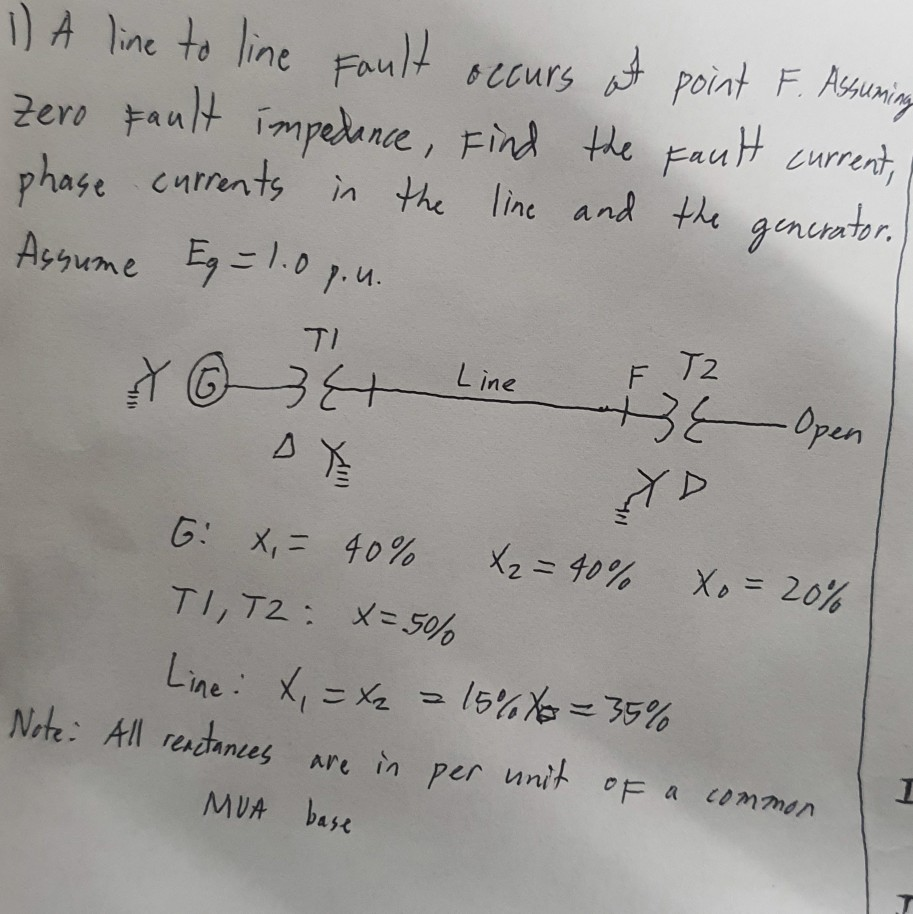 1) A line to line Fault occurs at point F. Assuming
Zero Fault impedance, Find the Fault current,
phase currents in the line and the generator.
Assume Eg = 1.0 p.u.
T1
G
Line
F T2
Open
Δ Y
Y Δ
G: X₁ = 40% X₂ = 40% X₀ = 20%
T1, T2: X = 50%
Line: X₁ = X₂ = 15% X₀ = 35%
Note: All reactances are in per unit OF a common
MVA base
I
I